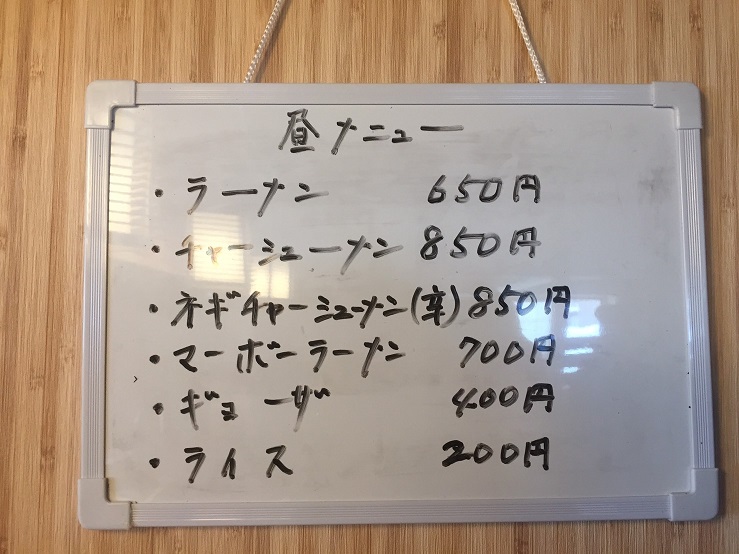 昼メニュー
・ラーメン 650円
・チャーシューメン 850円
・ネギチャーシューメン(辛) 850円
・マーボーラーメン 700円
・ギョーザ 400円
・ライス 200円